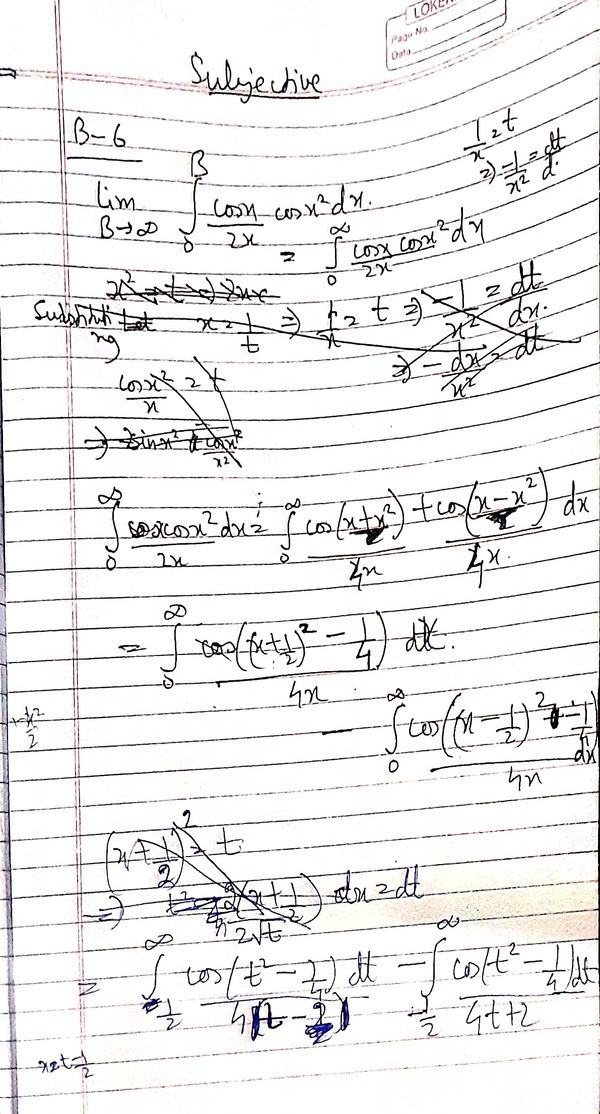 LOKE
Page No.
Date
Subjective
B-6
1/x = t
=> -1/x² = dt/d.
lim B→∞ ∫₀^B cosx/2x cosx² dx.
= ∫₀^∞ cosx cosx²/2x dx
x² = t => 2x
Substituting x = 1/t => 1/x = t => -1/x² = dt/dx.
=> -dx/x² = dt
cosx²/x = t
=> -sinx² cosx²/x²
∫₀^∞ cosx cosx²/2x dx = ∫₀^∞ cos(x+x²)/4x + cos(x-x²)/4x dx
= ∫₀^∞ cos((x+1/2)² - 1/4)/4x dx.
- ∫₀^∞ cos((x-1/2)² - 1/4)/4x dx
(x+1/2)² = t
=> 2(x+1/2) dx = dt
2√t
= ∫_{1/2}^∞ cos(t² - 1/4) dt/4(t-1/2) - ∫_{-1/2}^∞ cos(t² - 1/4) dt/4t+2
x = t-1/2